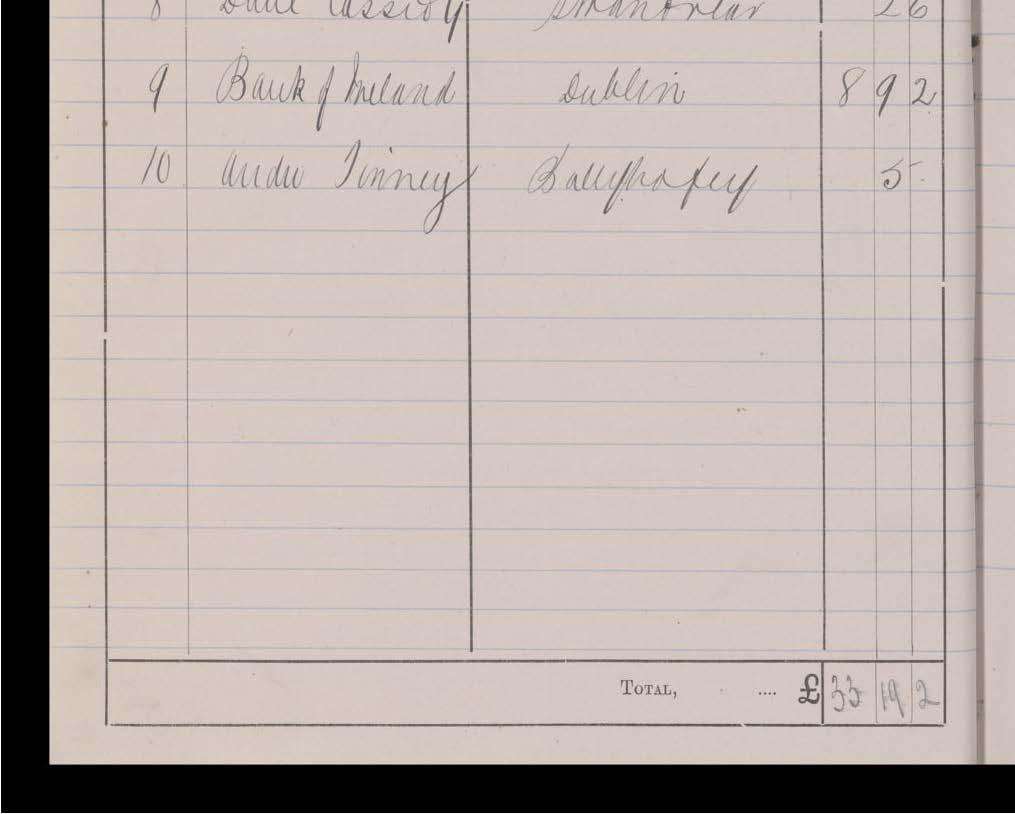 8 Cassidy 2 6
9 Bank of Ireland Dublin 8 9 2
10 Andw Finney Ballybofey 5 -
TOTAL, .... £ 33 19 2